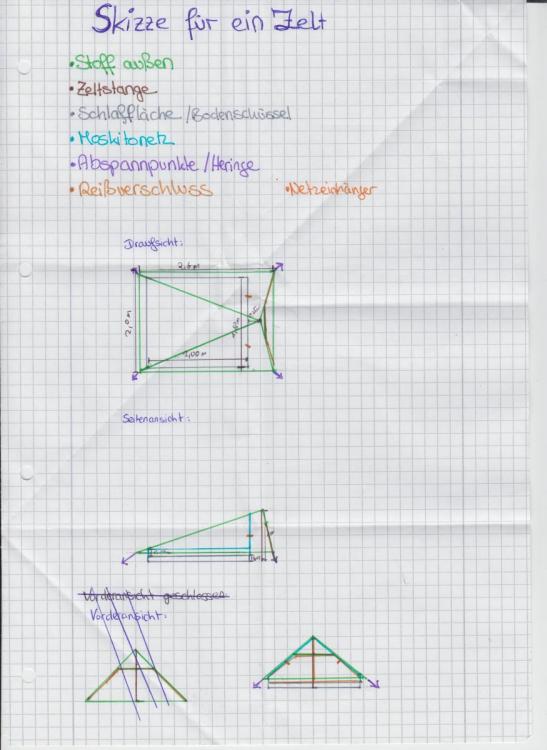 Skizze für ein Zelt
• Stoff außen
• Zeltstange
• Schlaffläche /Bodenschüssel
• Moskitonetz
• Abspannpunkte /Heringe
• Reißverschluss • Netzeinhänger
Draufsicht:
2,0m
2,00m
Seitenansicht:
Vorderansicht geschlossen
Vorderansicht: